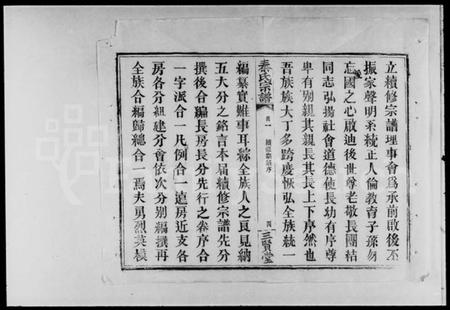 立續修宗譜理事會爲承前啟後丕
振家聲明系統正人倫教育子孫勿
忘國之心啟迪後世尊老敬長團結
同志弘揚社會道德使長幼有序尊
卑有別親其親長其長上下序然也
吾族族大丁多跨慶恢弘全族統一
秦氏宗譜 卷一 續修新序 四 三賢堂
編纂實難事耳綜全族人之良見納
五大分之銘言本屆續修宗譜先分
撰後合編長房長分先行之牽序合
一字派合一凡例合一遠房近支各
房各分組建分會依次分別編撰再
全族合編歸總合一焉夫勇烈英模